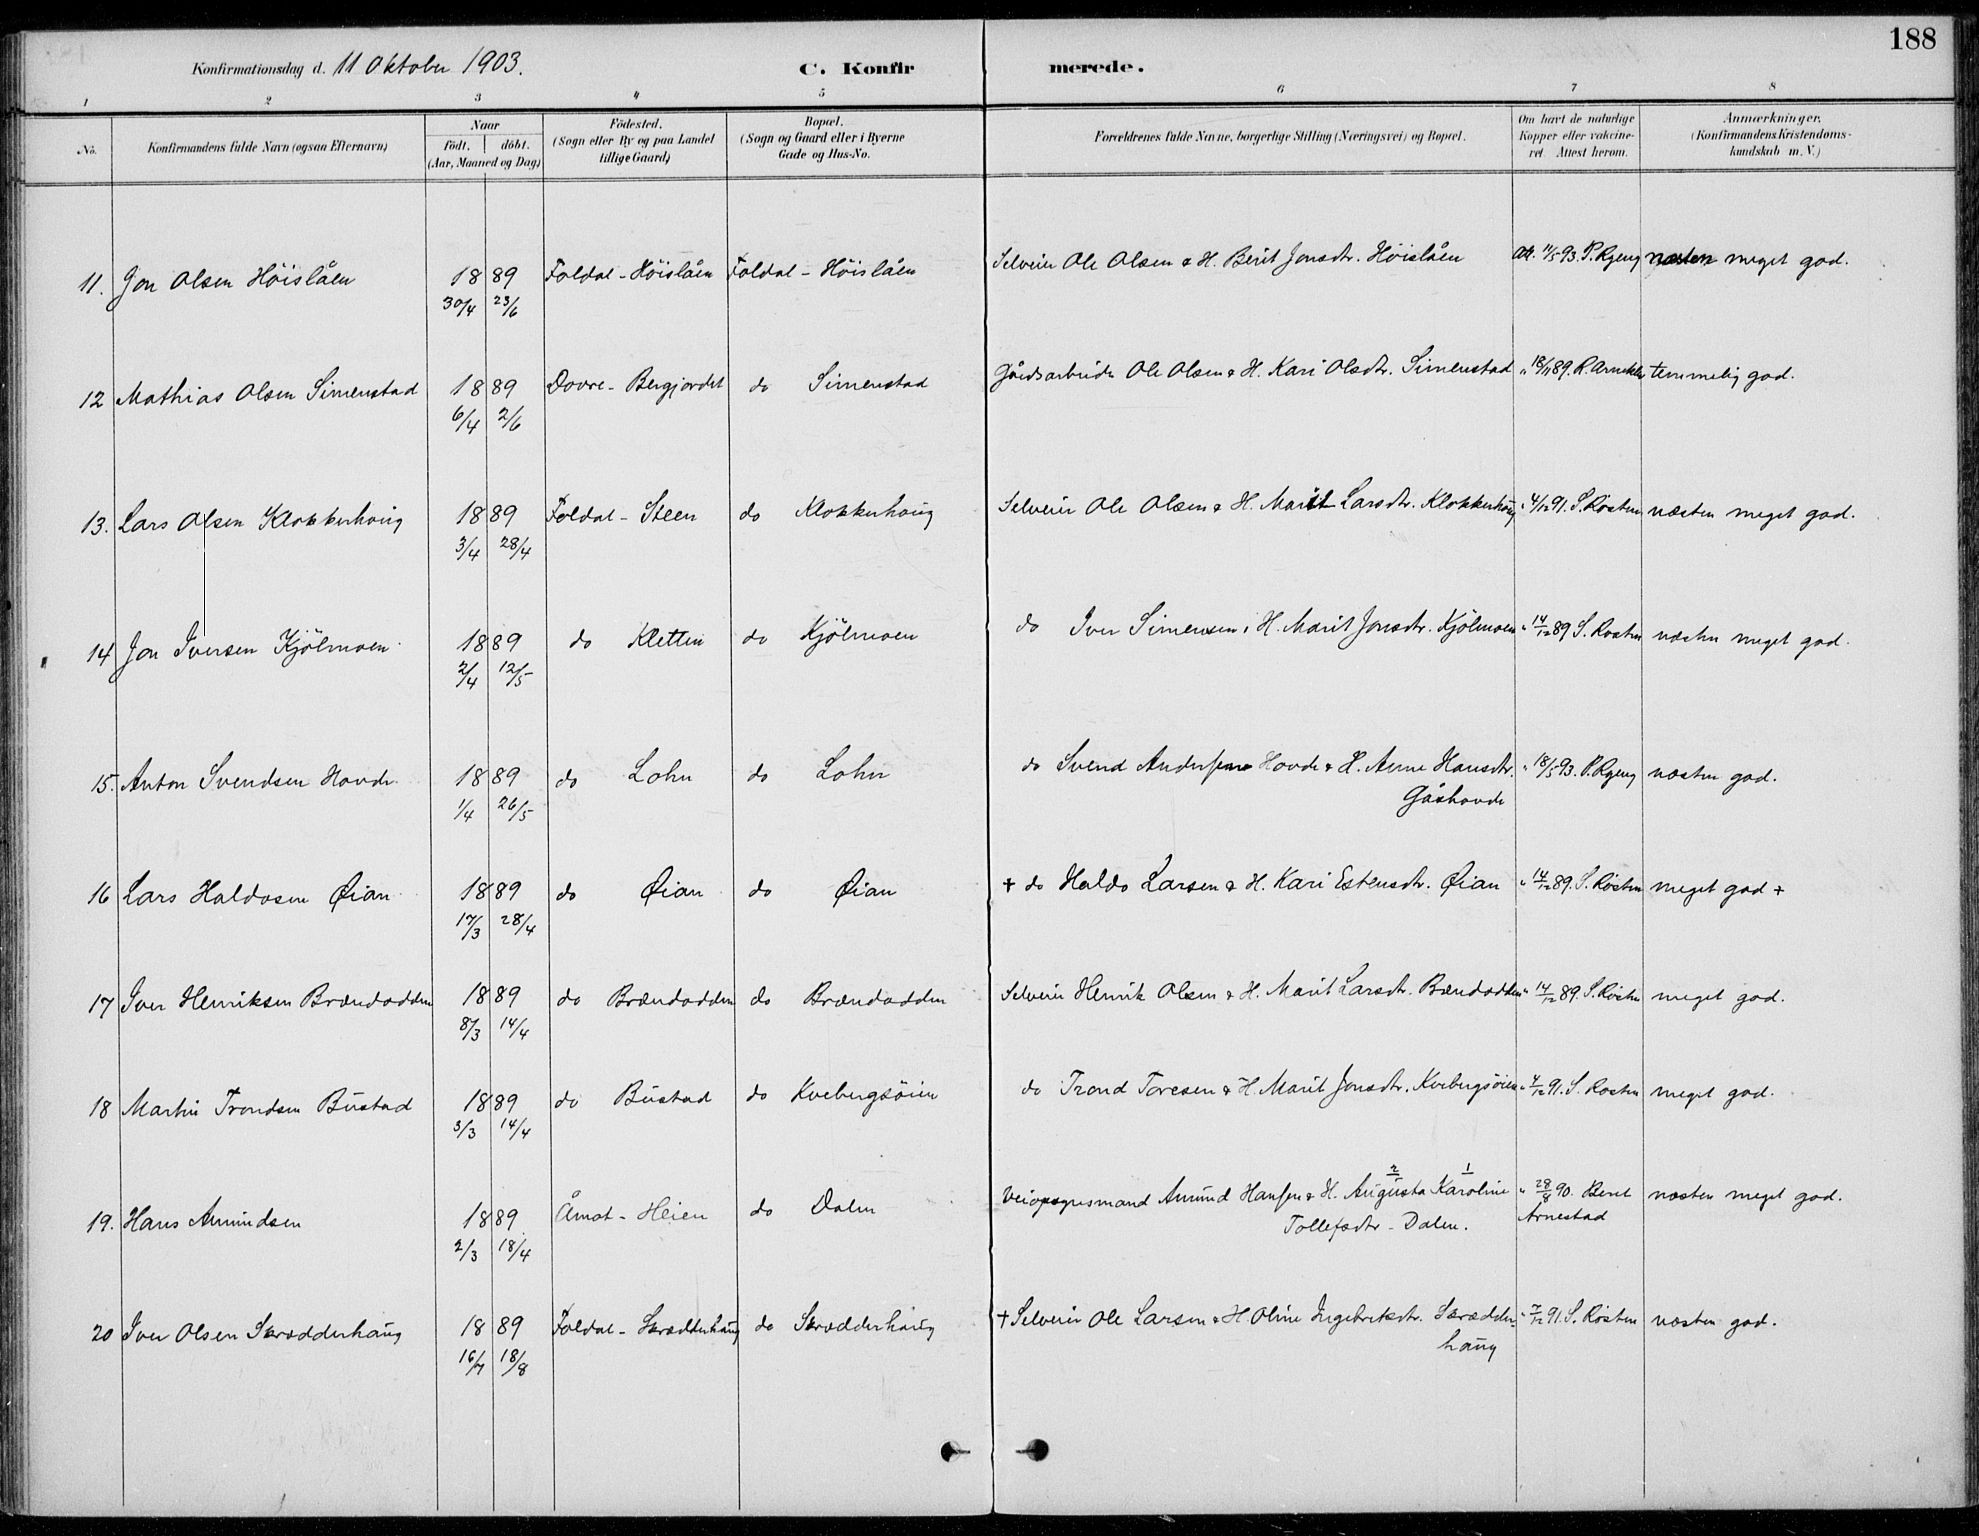 188
Konfirmationsdag d. 11 Oktober 1903.
C. Konfirmerede.
1 2 3 4 5 6 7 8
No. Konfirmandens fulde Navn (ogsaa Efternavn)
Naar födt. döbt. (Aar, Maaned og Dag)
Födested. (Sogn eller By og paa Landet tillige Gaard)
Bopæl. (Sogn og Gaard eller i Byerne Gade og Hus-No.
Forældrenes fulde Navne, borgerlige Stilling (Næringsvei) og Bopæl.
Om havt de naturlige Kopper eller vakcineret Attest herom.
Anmærkninger. (Konfirmandens Kristendomskundskab m. V.)
11. Jon Olsen Höislåen 1889 30/4 23/6 Foldal - Höislåen Foldal - Höislåen Selveier Ole Olsen & H. Berit Jonsdtr. Höislåen Att. 11/5 93. P. Ryeng næsten meget god.
12 Mathias Olsen Simenstad 1889 6/4 2/6 Dovre - Bergjordet do Simenstad Gårdsarbeider Ole Olsen & H. Kari Olsdtr. Simenstad " 18/11 89. R. temmelig god.
13. Lars Olsen Klokkerhoug 1889 3/4 28/4 Foldal - Steen do Klokkerhoug Selveier Ole Olsen & H. Marit Larsdtr. Klokkerhoug " 4/12 91. S. Rosten næsten meget god.
14 Jon Iversen Kjölmoen 1889 2/4 12/5 do Kletten do Kjölmoen do Iver Simensen & H. Marit Jonsdtr. Kjölmoen " 14/12 89 S. Rosten næsten meget god.
15. Anton Svendsen Hovde 1889 1/4 26/5 do Lohn do Lohn do Svend Andersen Hovde & H. Anne Hansdtr. Gåshovde " 18/5 93. P. Ryeng næsten god.
16 Lars Haldosen Øian 1889 17/3 28/4 do Øian do Øian + do Haldo Larsen & H. Kari Estensdtr. Øian " 14/12 89. S. Rosten meget god +
17 Iver Henriksen Brændodden 1889 8/3 14/4 do Brændodden do Brændodden Selveier Henrik Olsen & H. Marit Larsdtr. Brændodden " 14/12 89. S. Rosten meget god.
18 Martin Trondsen Bustad 1889 3/3 14/4 do Bustad do Kvebergsöien do Trond Toresen & H. Marit Jonsdtr. Kvebergsöien " 4/12 91. S. Rosten meget god.
19. Hans Amundsen 1889 2/3 18/4 Åmot - Heien do Dalen Veiopsynsmand Amund Hansen & H. Augusta Karoline Tollefsdtr - Dalen. " 28/8 90. Arnestad næsten meget god.
20 Iver Olsen Skrædderhaug 1889 16/7 18/8 Foldal - Skrædderhaug do Skrædderhaug + Selveier Ole Larsen & H. Oline Ingebretsdtr. Skrædderhaug " 7/12 91. S. Rosten næsten god.